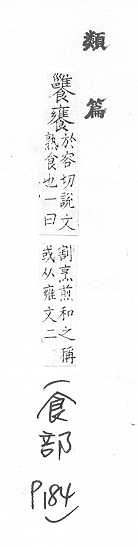 類篇
饔
於容切說文
熟食也一曰
割烹煎和之稱
或从雍文二
(食部
P184)